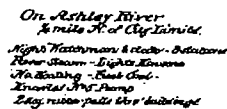 On Ashley River
½ mile N. of City Limits.
Night Watchman & clock - 8 stations
Power Steam - Lights Kerosene
No Heating - Fuel Coal -
Knowles No 5 Pump
2 day river pails thro' buildings